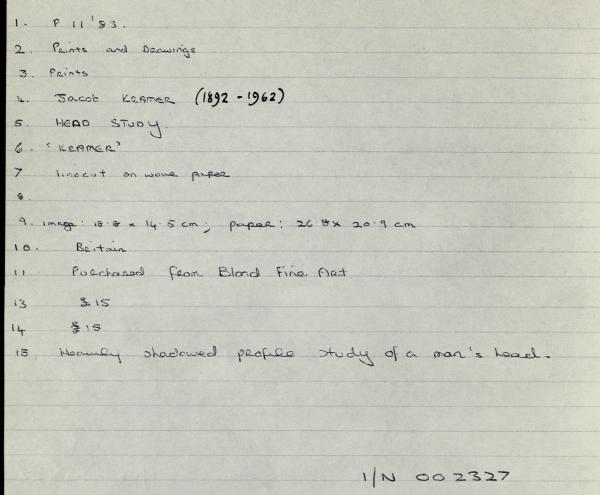 1. P 11 '83.
2. Prints and Drawings
3. Prints
4. Jacob KRAMER (1892 - 1962)
5. HEAD STUDY.
6. 'KRAMER'
7 linocut on wove paper
8.
9. image: 18.8 x 14.5 cm; paper: 26.8 x 20.9 cm
10. Britain
11 Purchased from Blond Fine Art
13 £15
14 £15
15 Heavily shadowed profile study of a man's head.
I/N 002327